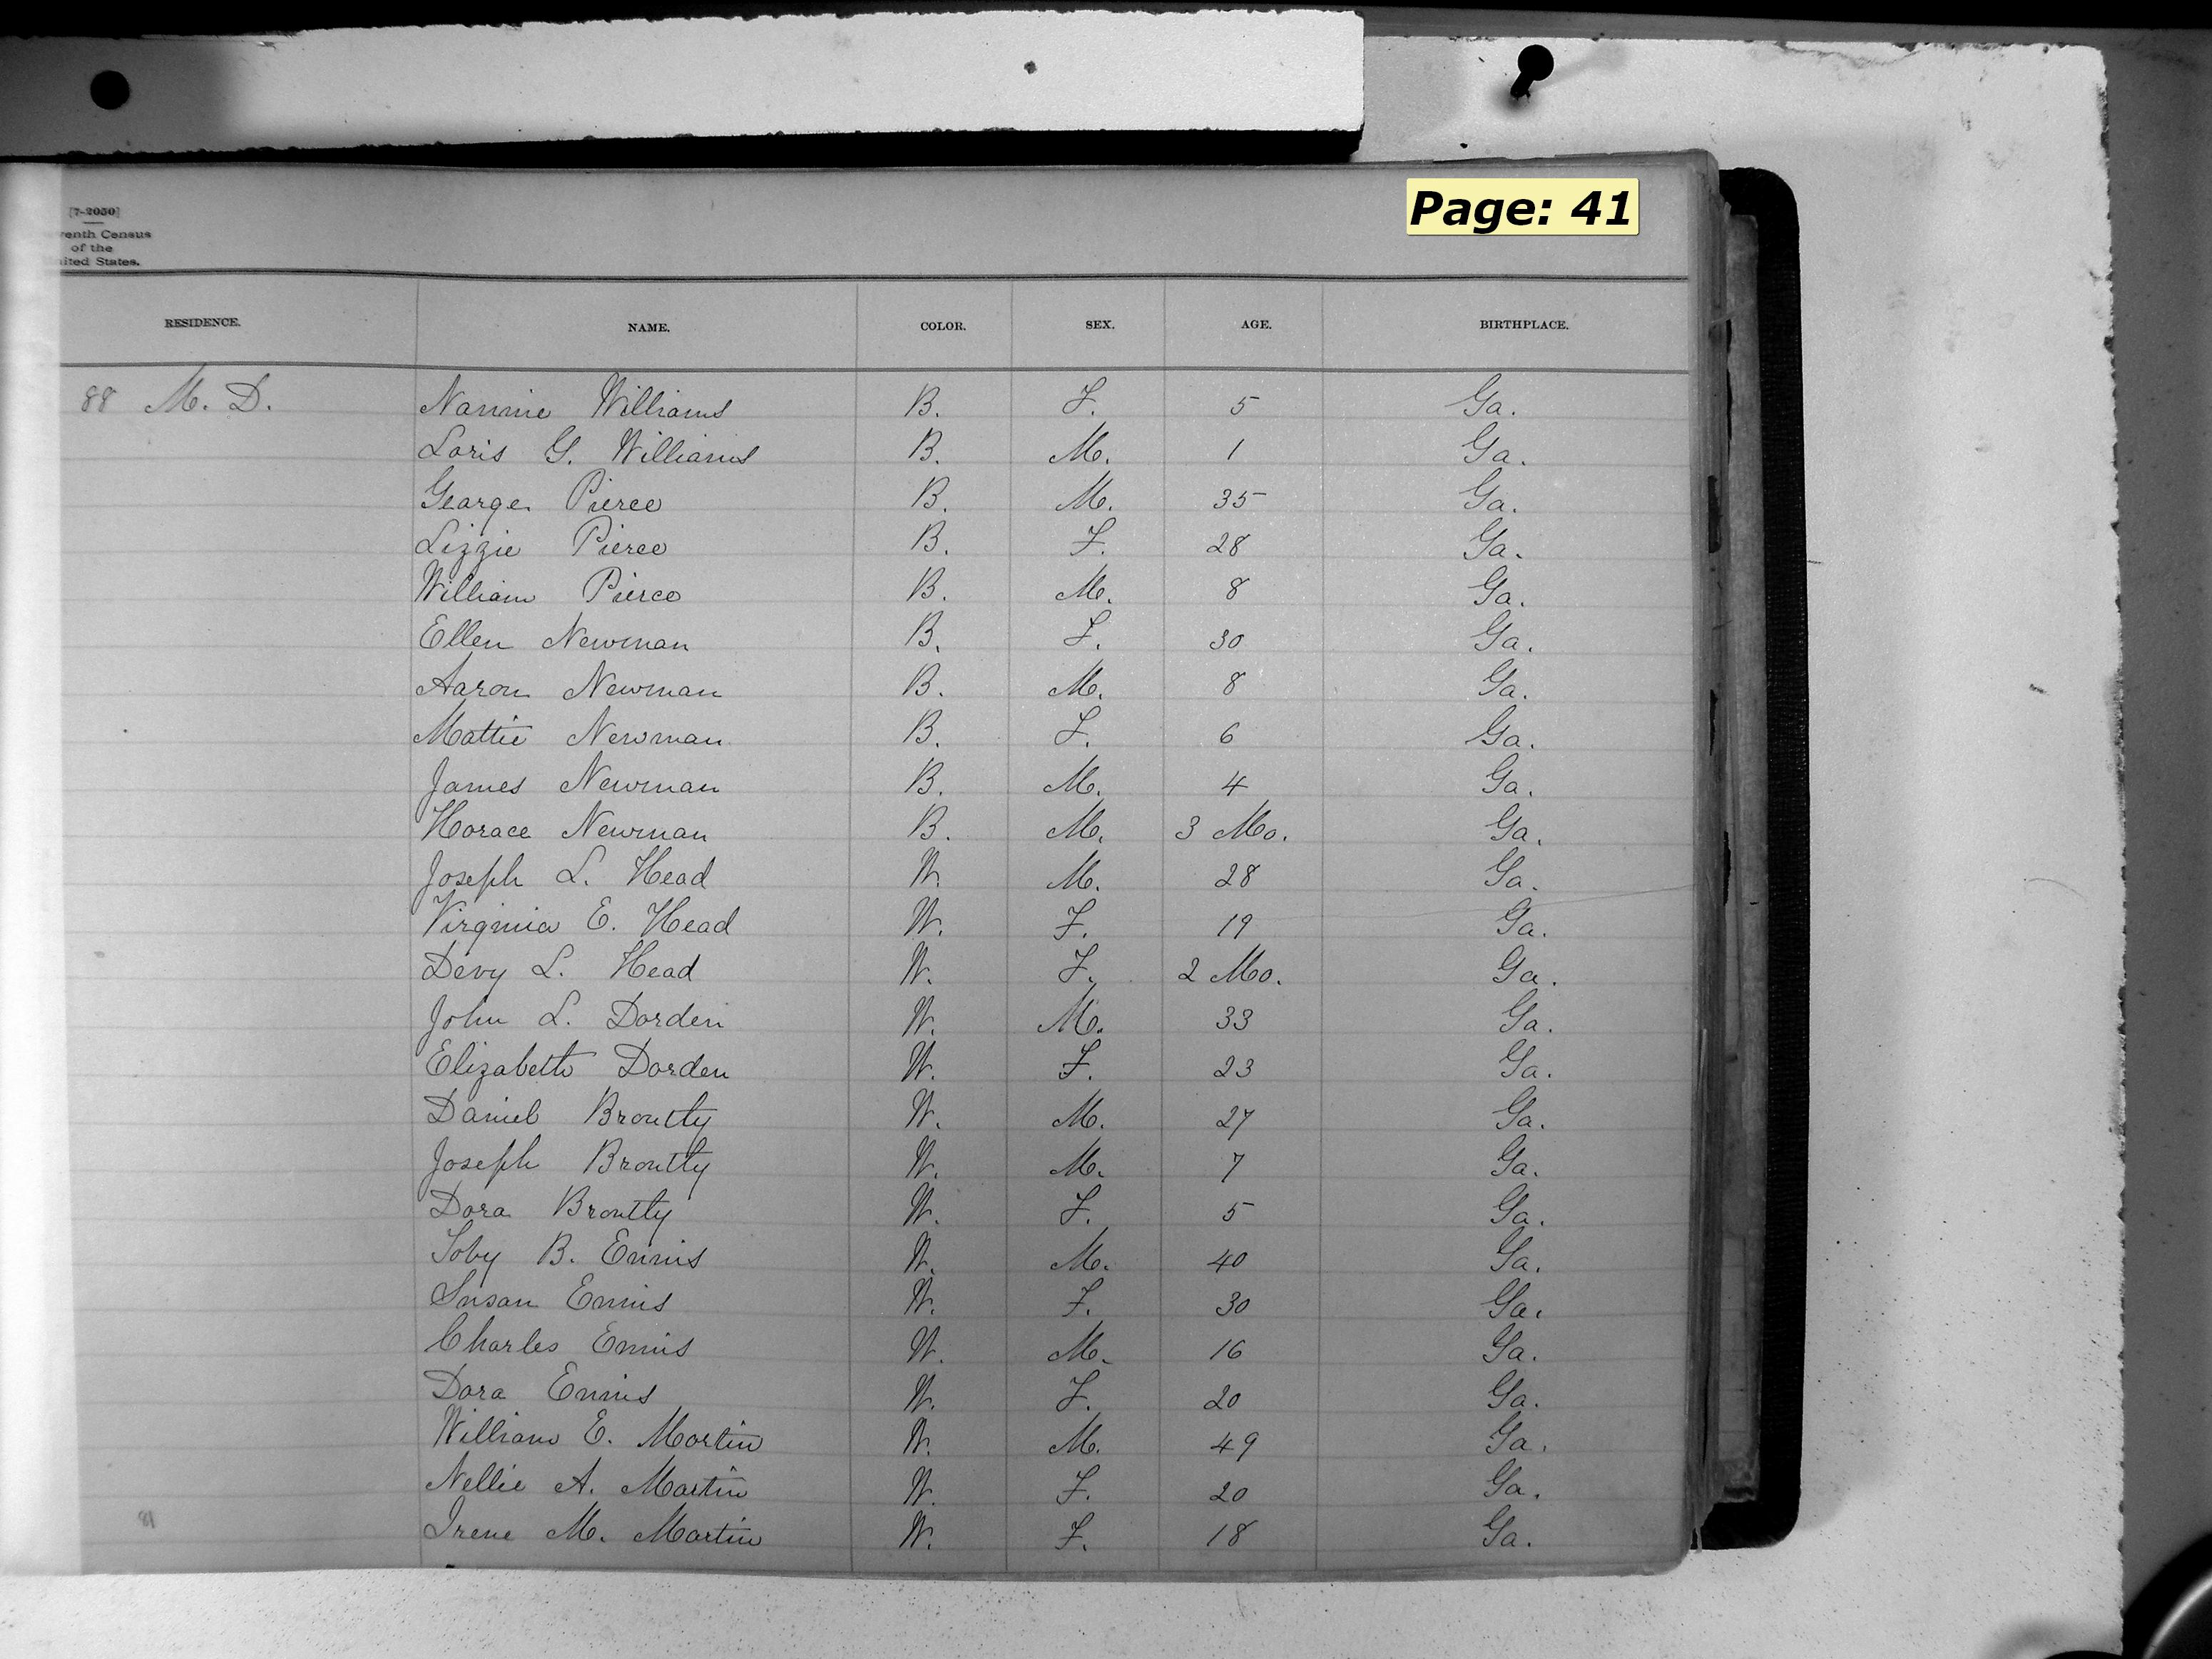 Page: 41
[7-2050]
venth Census
of the
nited States.
RESIDENCE. NAME. COLOR. SEX. AGE. BIRTHPLACE.
88 M. D. Nannie Williams B. F. 5 Ga.
Loris G. Williams B. M. 1 Ga.
George Pierce B. M. 35 Ga.
Lizzie Pierce B. F. 28 Ga.
William Pierce B. M. 8 Ga.
Ellen Newman B. F. 30 Ga.
Aaron Newman B. M. 8 Ga.
Mattie Newman B. F. 6 Ga.
James Newman B. M. 4 Ga.
Horace Newman B. M. 3 Mo. Ga.
Joseph L. Head W. M. 28 Ga.
Virginia E. Head W. F. 19 Ga.
Devy L. Head W. F. 2 Mo. Ga.
John L. Dorden W. M. 33 Ga.
Elizabeth Dorden W. F. 23 Ga.
Daniel Broutly W. M. 27 Ga.
Joseph Broutly W. M. 7 Ga.
Dora Broutly W. F. 5 Ga.
Toby B. Ennis W. M. 40 Ga.
Susan Ennis W. F. 30 Ga.
Charles Ennis W. M. 16 Ga.
Dora Ennis W. F. 20 Ga.
William E. Martin W. M. 49 Ga.
Nellie A. Martin W. F. 20 Ga.
Irene M. Martin W. F. 18 Ga.